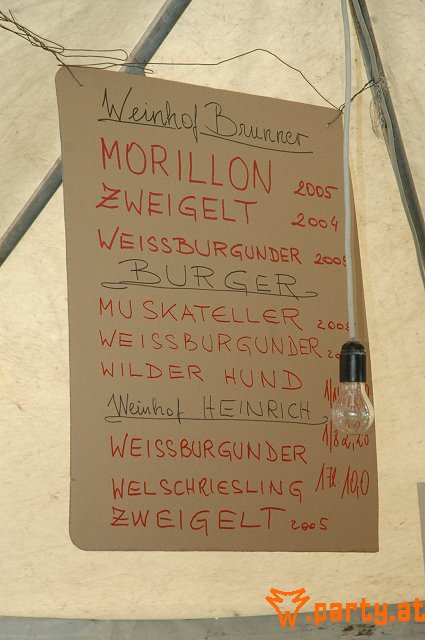 Weinhof Brunner
MORILLON 2005
ZWEIGELT 2004
WEISSBURGUNDER 2005
BURGER
MUSKATELLER 2005
WEISSBURGUNDER
WILDER HUND
Weinhof HEINRICH
1/8 2,20
WEISSBURGUNDER
WELSCHRIESLING 1 Fl. 10,0
ZWEIGELT 2005
party.at